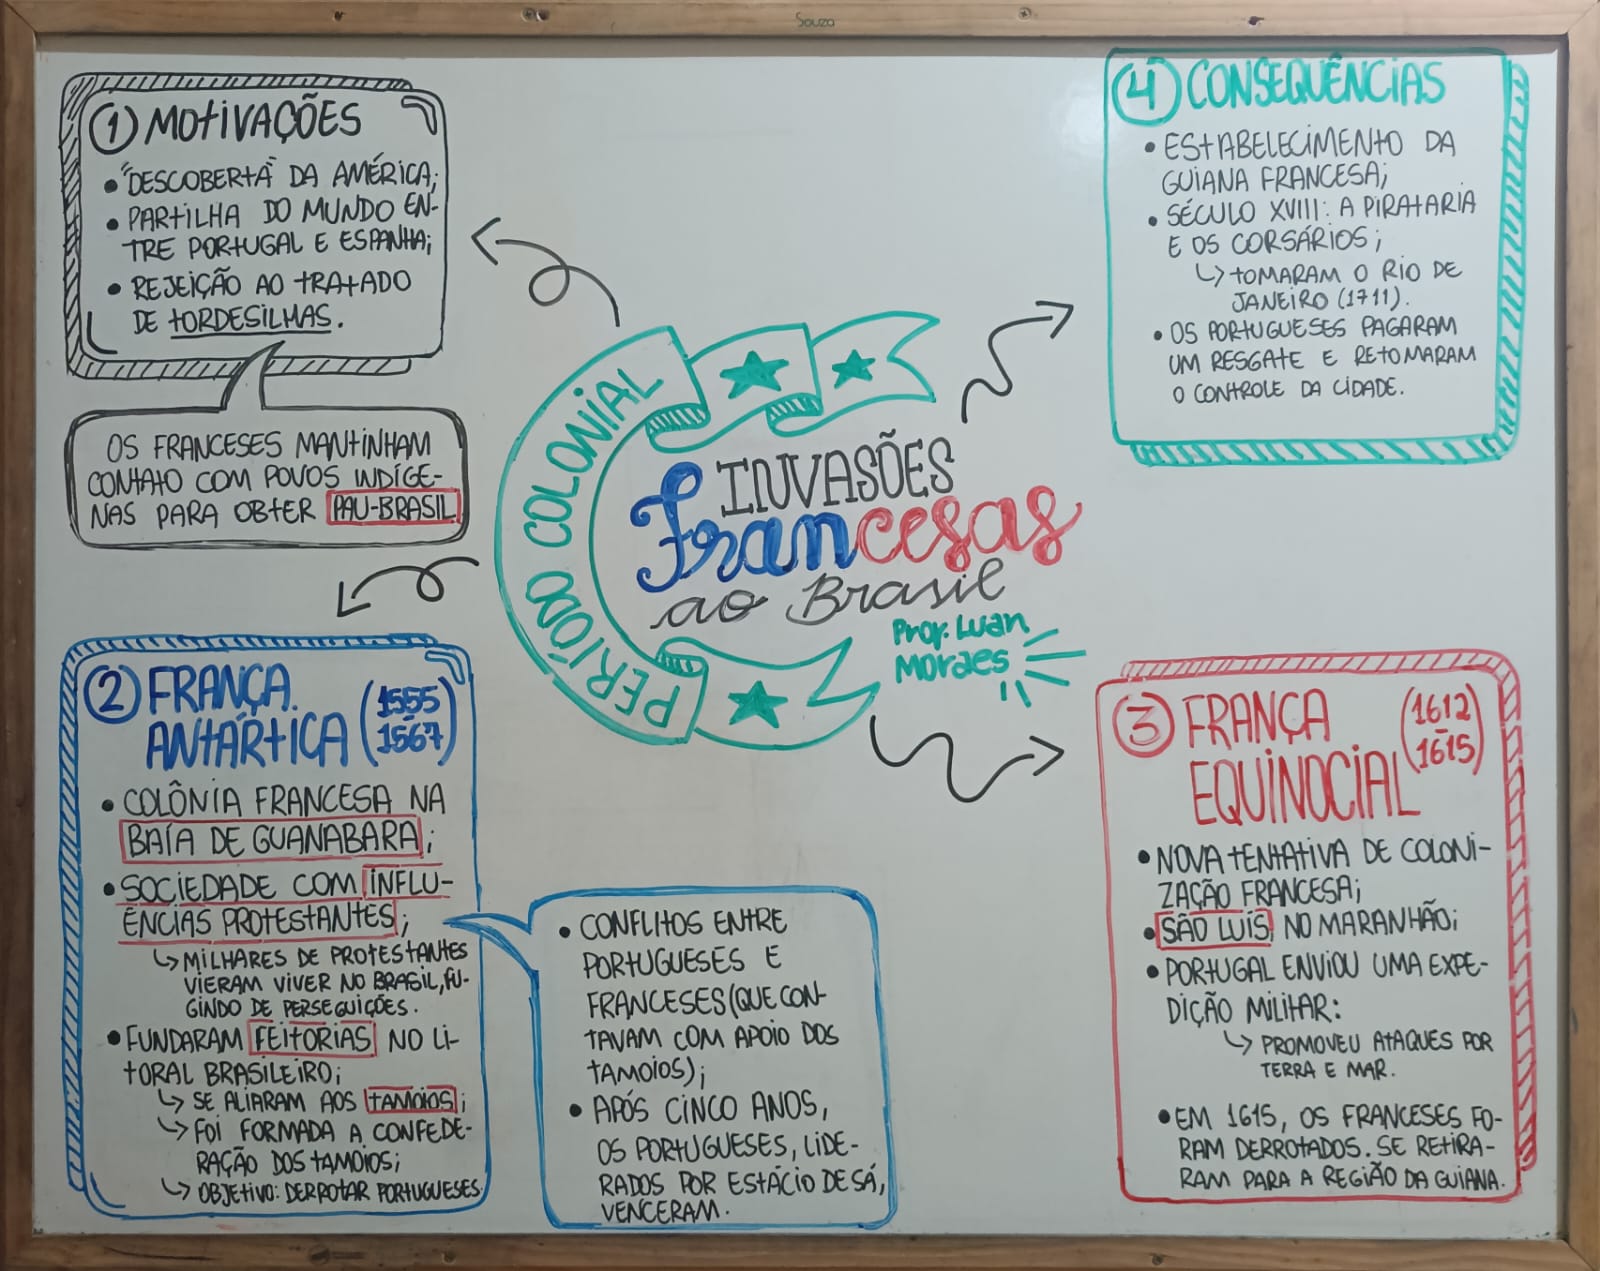 Souza
① MOTIVAÇÕES
• "DESCOBERTA" DA AMÉRICA;
• PARTILHA DO MUNDO EN-
TRE PORTUGAL E ESPANHA;
• REJEIÇÃO AO TRATADO
DE TORDESILHAS.
OS FRANCESES MANTINHAM
CONTATO COM POVOS INDÍGE-
NAS PARA OBTER PAU-BRASIL
PERÍODO COLONIAL
INVASÕES
Francesas
ao Brasil
Prof. Luan
Moraes
② FRANÇA
ANTÁRTICA (1555
-
1567)
• COLÔNIA FRANCESA NA
BAÍA DE GUANABARA;
• SOCIEDADE COM INFLU-
ÊNCIAS PROTESTANTES;
↳ MILHARES DE PROTESTANTES
VIERAM VIVER NO BRASIL, FU-
GINDO DE PERSEGUIÇÕES.
• FUNDARAM FEITORIAS NO LI-
TORAL BRASILEIRO;
↳ SE ALIARAM AOS TAMOIOS;
↳ FOI FORMADA A CONFEDE-
RAÇÃO DOS TAMOIOS;
↳ OBJETIVO: DERROTAR PORTUGUESES.
• CONFLITOS ENTRE
PORTUGUESES E
FRANCESES (QUE CON-
TAVAM COM APOIO DOS
TAMOIOS);
• APÓS CINCO ANOS,
OS PORTUGUESES, LIDE-
RADOS POR ESTÁCIO DE SÁ,
VENCERAM.
③ FRANÇA
EQUINOCIAL (1612
-
1615)
• NOVA TENTATIVA DE COLONI-
ZAÇÃO FRANCESA;
• SÃO LUÍS, NO MARANHÃO;
• PORTUGAL ENVIOU UMA EXPE-
DIÇÃO MILITAR:
↳ PROMOVEU ATAQUES POR
TERRA E MAR.
• EM 1615, OS FRANCESES FO-
RAM DERROTADOS. SE RETIRA-
RAM PARA A REGIÃO DA GUIANA.
④ CONSEQUÊNCIAS
• ESTABELECIMENTO DA
GUIANA FRANCESA;
• SÉCULO XVIII: A PIRATARIA
E OS CORSÁRIOS;
↳ TOMARAM O RIO DE
JANEIRO (1711).
• OS PORTUGUESES PAGARAM
UM RESGATE E RETOMARAM
O CONTROLE DA CIDADE.